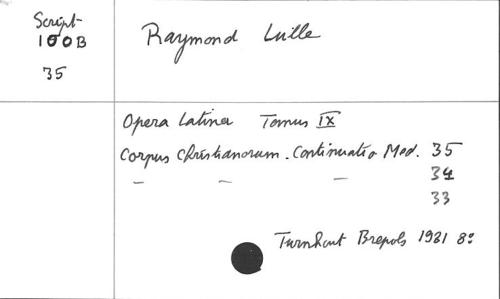 Script-
100B
35
Raymond Lulle
Opera Latina Tomus IX
Corpus Christianorum. Continuatio Med. 35
— — — 34
33
Turnhout Brepols 1981 8º